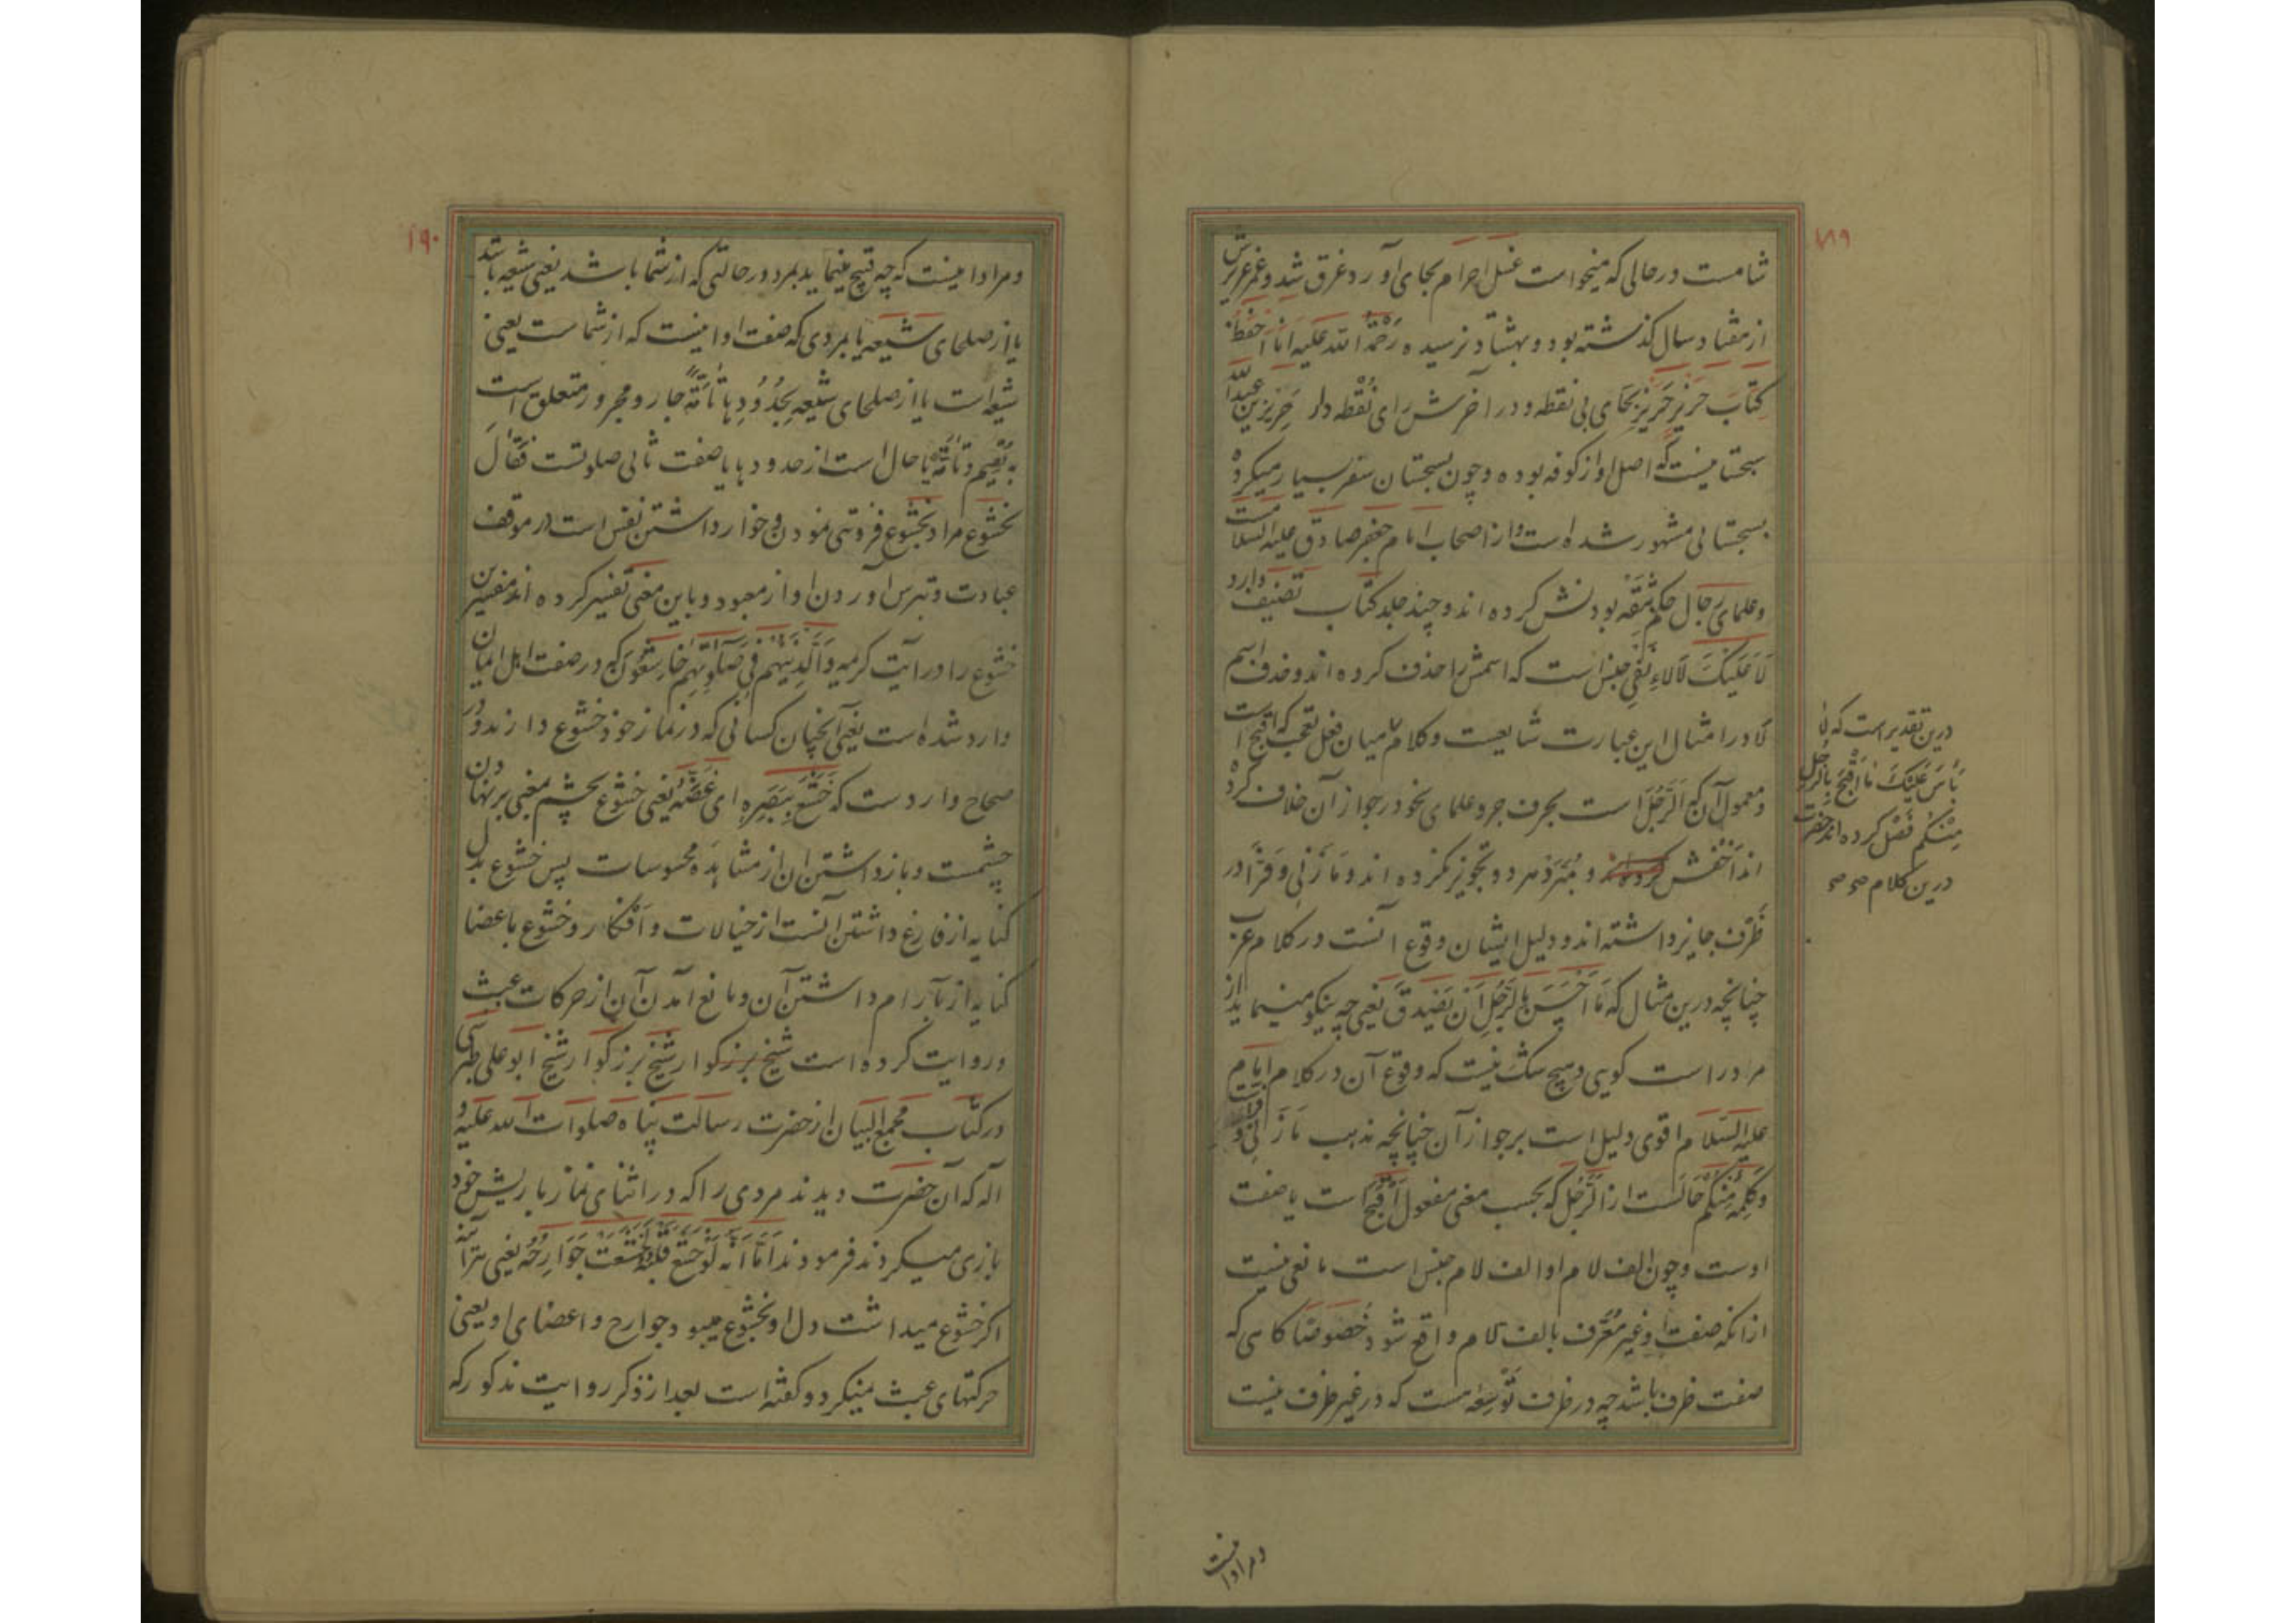 ۱۸۹
شامست در حالی که میخواست غسل احرام بجای آورد غرق شد و عمر عزیزش
از هفتاد سال گذشته بود و بهشتاد نرسیده رَحْمَةُ الله علیه اَنَا اَحْفَظُ
کِتَابَ حَرِیْز حَرِیز بحَای بی نقطه و در آخرش زَای نُقْطه دار حَرِیز بن عبدالله
سجستانیست که اصل او از کوفه بوده و چون بسجستان سفر بسیار میکرده
بسجستانی مشهور شده است و از اصحاب امام جعفر صادق علیه السلام است
و علمای رجال حکم بثقه بودنش کرده اند و چند جلد کتاب تصنیف دارد
لَا عَلَیْکَ لَا لاءِ نَفْیِ جنس است که اسمش را حذف کرده اند و حذف اسم
لَا در امثال این عبارت شایعست و کلام میان فعل تعجب که اقبح است
و معمول آن که اَلرَّجُل است بحرف جر و علمای نحو در جواز آن خلاف کرده
اند اَخْفش و مُبَرَّد مردود تجویز نکرده اند و مَازِنی و فَرَّا در
ظَرْف جایز داشته اند و دلیل ایشان وقوع آنست در کلام عرب
چنانچه درین مثال که مَا اَحْسَنَ بِالرَّجُلِ اَنْ یَصْدِقَ یعنی چه نیکو مینماید از
مرد راست کویی و هیچ شک نیست که وقوع آن در کلام امام
علیه السّلام اقوی دلیل است بر جواز آن چنانچه مذهب مَازِنی و
وَکَلِمَه مِنْکُم حَالست از اَلرَّجُل که بحسب معنی مفعول اَقْبَحَ است یا صفت
اوست و چون الف لام او الف لام جنس است مانعی نیست
از انکه صفت او غیر مُعَرَّف بالف لام واقع شود خُصُوصًا کاهی که
صفت ظرف باشد چه در ظرف تَوْسِعَه هست که در غیر ظرف نیست
درین تقدیر است که لا
بَأسَ عَلَیْکَ مَا اَقْبَحَ بِالرَّجُلِ
مِنْکُم فَصْل کرده اند حضرت
درین کلام صح صح
و مراد اینست
۱۹۰
و مراد اینست که چه قبیح مینماید بمرد در حالتی که از شما باشد یعنی شیعه باشد
یا از صلحای شیعه یا بمردی که صفت او اینست که از شماست یعنی
شیعه است یا از صلحای شیعه بِحُدُودِهَا تَامَّةً جار و مجرور متعلق است
به یُقیم و تامَّة یا حال است از حدودها یا صفت ثانی صلوتست فَقَالَ
بخشوع مراد بخشوع فروتنی نمودن و خوار داشتن نفس است در موقف
عبادت و بترس آوردن او از معبود و باین معنی تفسیر کرده اند مفسرین
خشوع را در آیت کریمه وَالَّذِینَ هُمْ فِی صَلَاتِهِمْ خَاشِعُونَ که در صفت اهل ایمان
وارد شده است یعنی آنچنان کسانی که در نماز خود خشوع دارند و در
صحاح واردست که خَشَعَ بِبَصَرِهِ ای غَضَّهُ یعنی خشوع بچشم معنی بر نهادن
چشمست و باز داشتن ان از مشاهَده محسوسات پس خشوع بدل
کنایه از فارغ داشتن آنست از خیالات و اَفْکار و خشوع باعضا
کنایه از بآرام داشتن آن و مانع آمدن آن از حرکات عبث
و روایت کرده است شیخ بزرکوار شیخ بزرکوار شیخ ابو علی طبرسی
در کتاب مجمع البیان از حضرت رسالت پناه صلوات الله علیه و
اله که آن حضرت دیدند مردی را که در اثنای نماز با ریش خود
بازی میکردند فرمودند اَمَّا اَنَّهُ لَوْ خَشَعَ قَلْبُهُ لَخَشَعَتْ جَوَارِحُهُ یعنی هرآینه
اکر خشوع میداشت دل او بخشوع میبود جوارح و اعضای او یعنی
حرکتهای عبث نمیکرد و کفته است بعد از ذکر روایت مذکور که